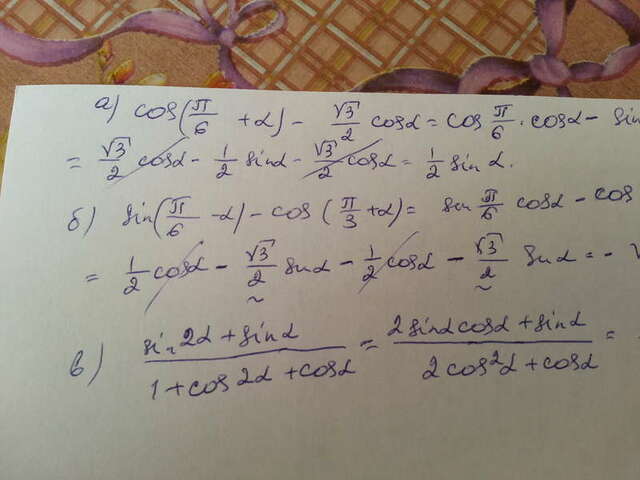 а) cos(π/6 + α) - √3/2 cosα = cos π/6 · cosα - sin
= √3/2 cosα - 1/2 sinα - √3/2 cosα = 1/2 sin α.
б) sin(π/6 - α) - cos(π/3 + α) = sin π/6 cosα - cos
= 1/2 cosα - √3/2 sinα - 1/2 cosα - √3/2 sinα = -
в) (sin 2α + sinα)/(1 + cos 2α + cosα) = (2 sinα cosα + sinα)/(2 cos²α + cosα) =